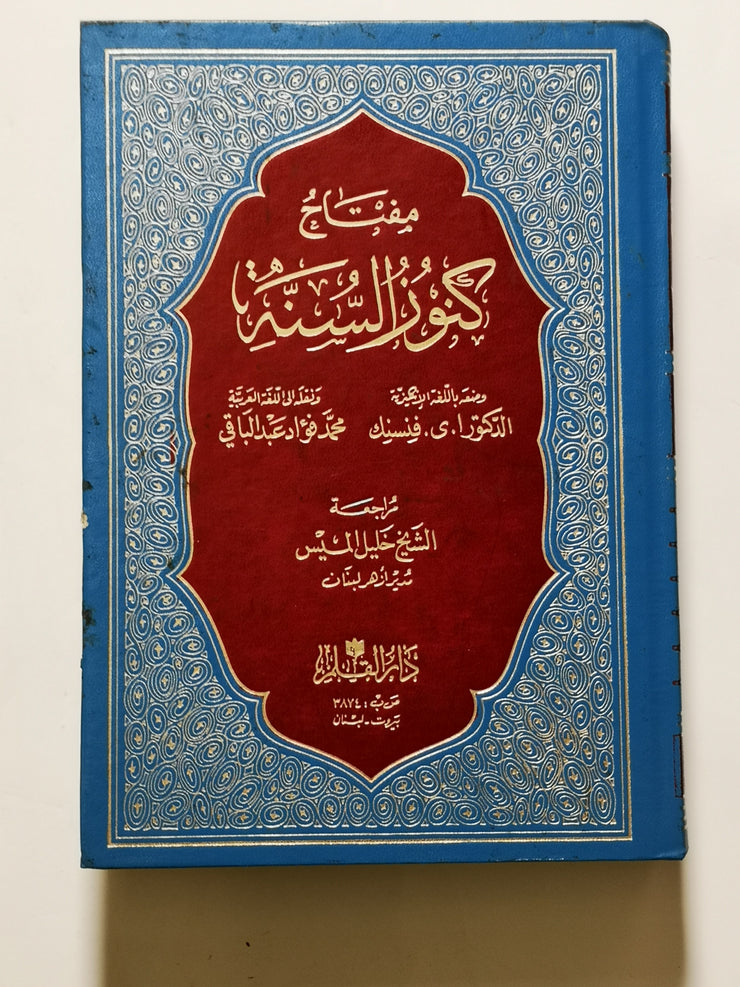 مفتاح
كنوز السنة
وضعه باللغة الإنجليزية
الدكتور ا. ى. فنسنك
ونقله الى اللغة العربية
محمد فؤاد عبد الباقي
مراجعة
الشيخ خليل الميس
مدير أزهر لبنان
دار القلم
ص ب: ٣٨٧٤
بيروت - لبنان